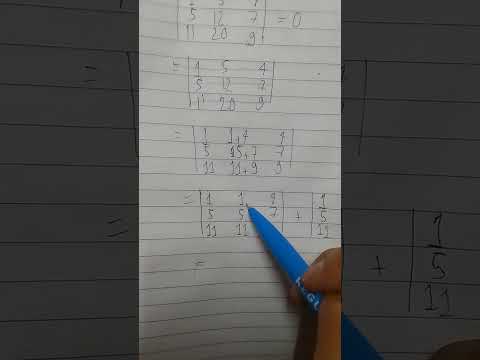 5 12 7 = 0
11 20 9
= | 1 5 4 |
| 5 12 7 |
| 11 20 9 |
= | 1 1+4 4 |
| 5 5+7 7 |
| 11 11+9 9 |
= | 1 1 4 | | 1
| 5 5 7 | + | 5
| 11 11 | 11
=